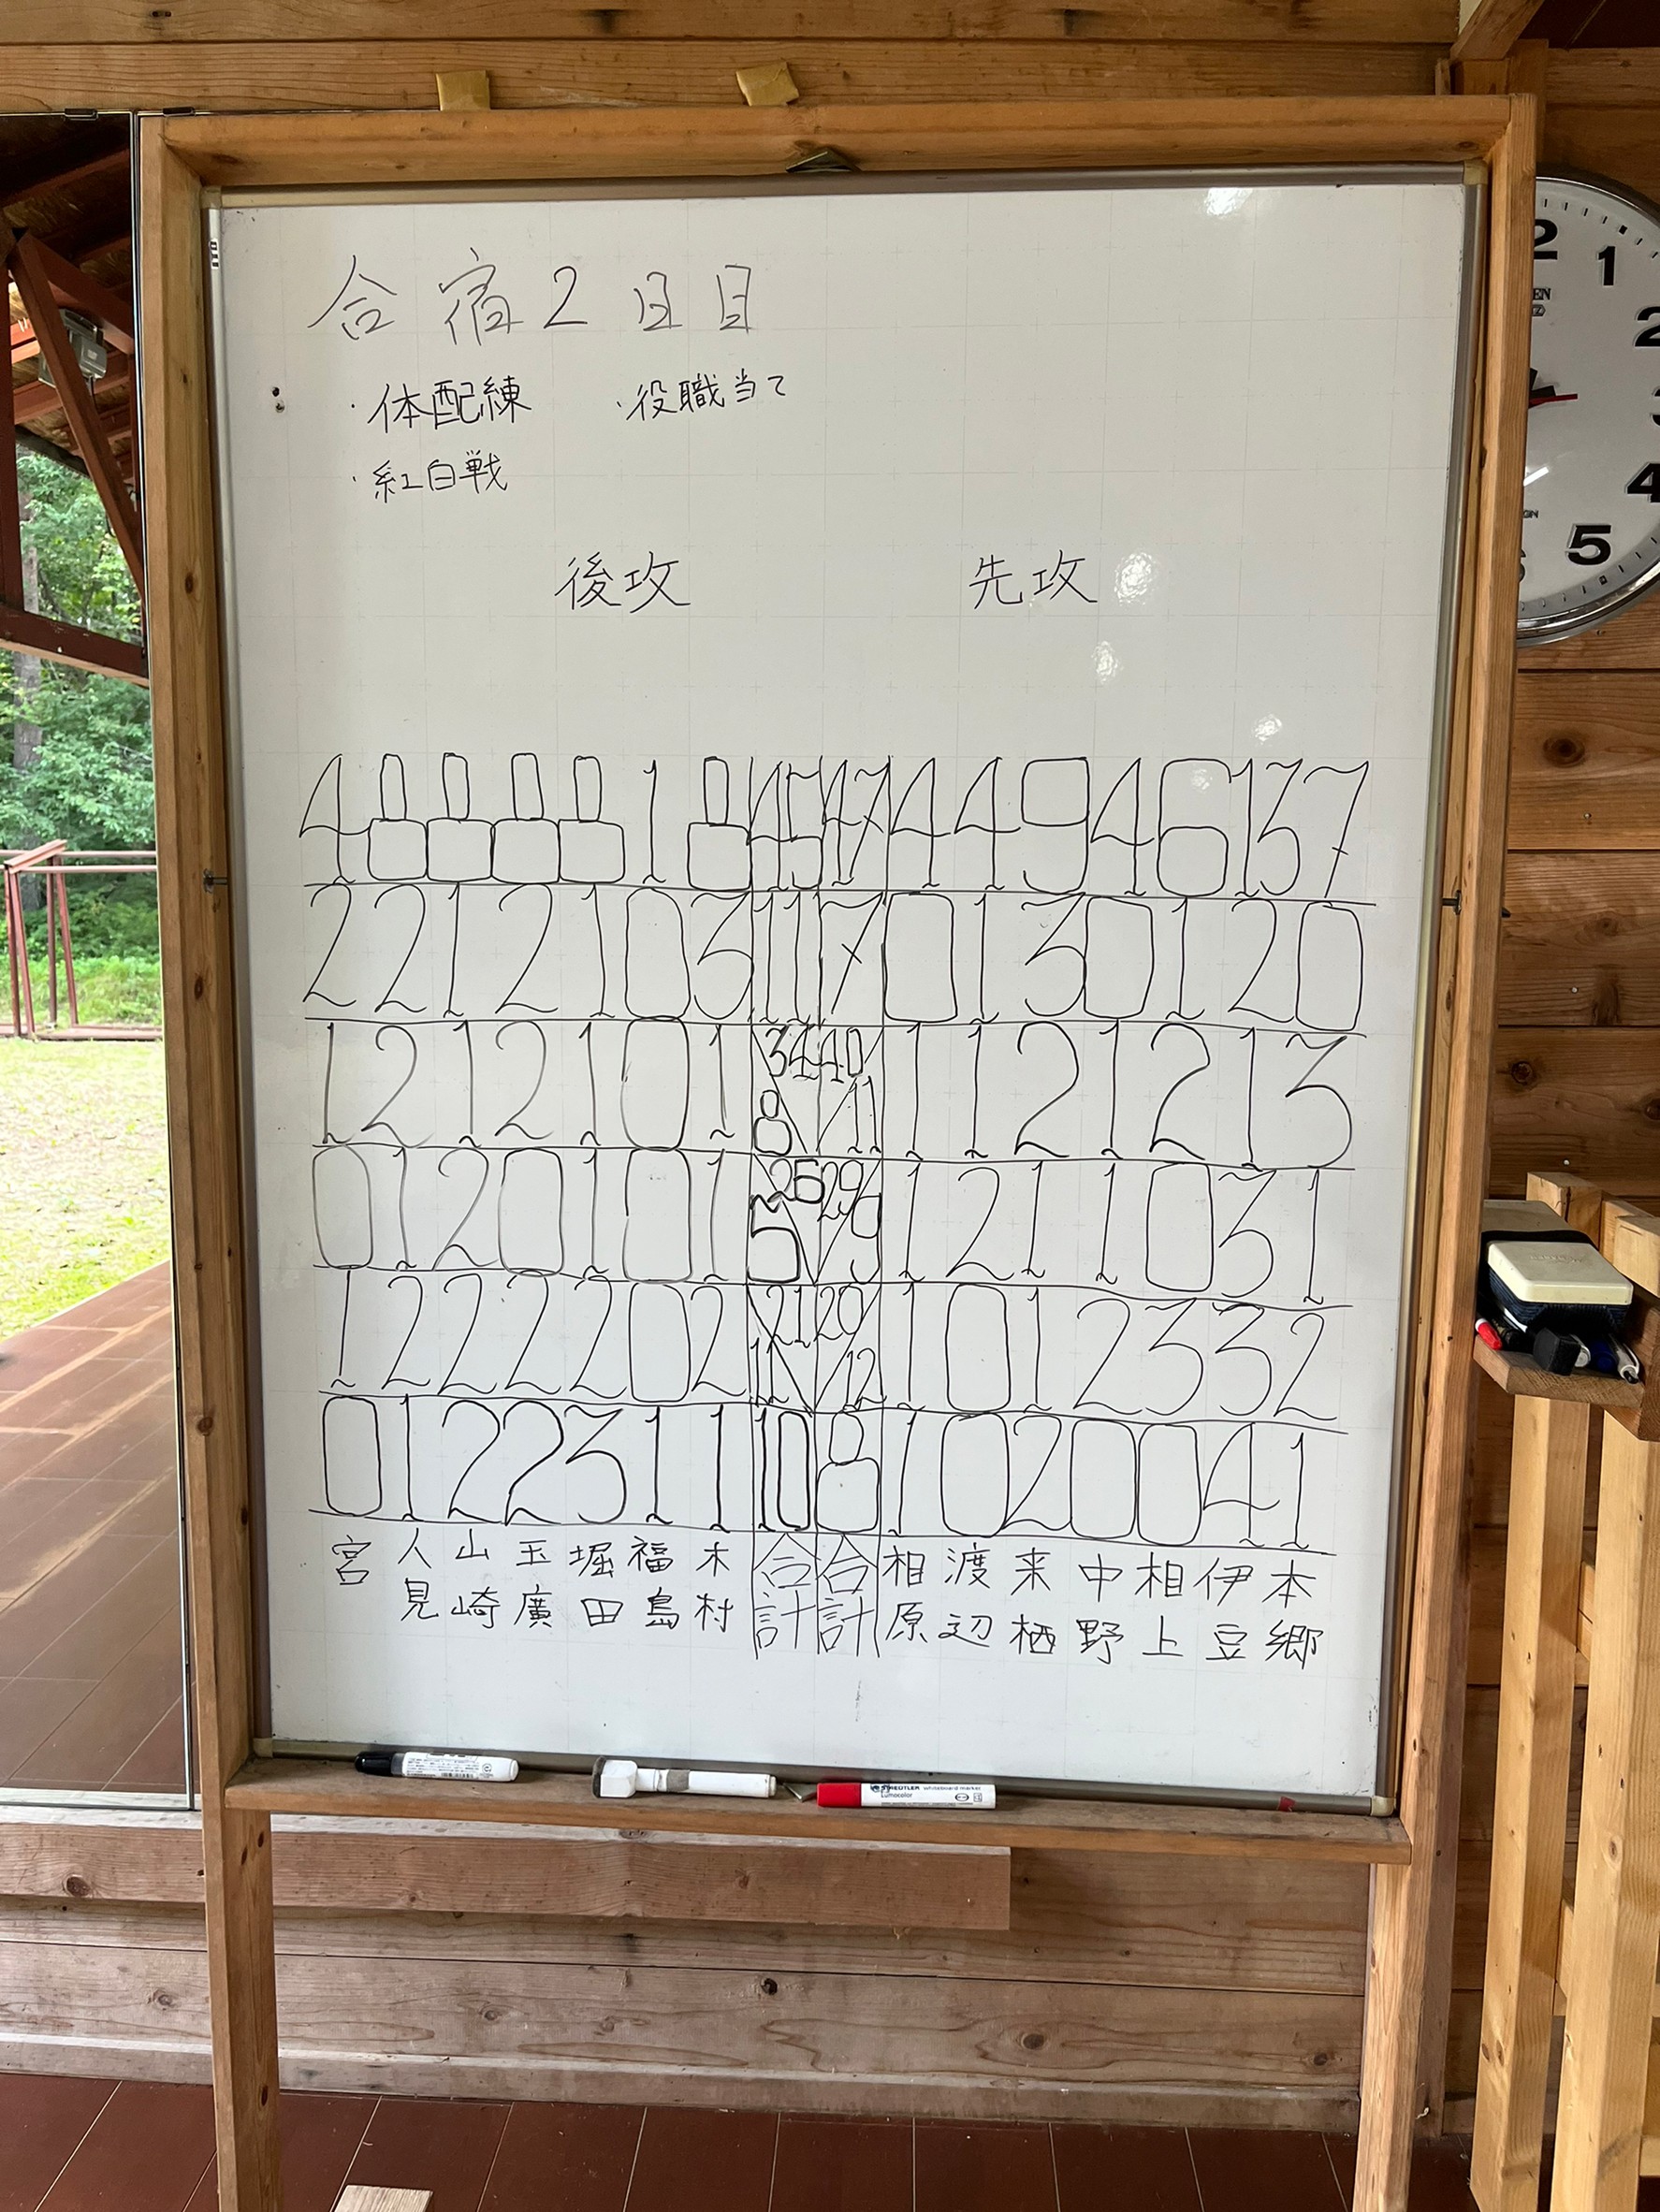 合宿2日目
・体配練 ・役職当て
・紅白戦
後攻 先攻
4 8 8 8 8 1 8 45 47 4 4 9 4 6 13 7
2 2 1 2 1 0 3 11 7 0 1 3 0 1 2 0
1 2 1 2 1 0 1 34 8 40 11 1 1 2 1 2 1 3
0 1 2 0 1 0 1 26 5 29 9 1 2 1 1 0 3 1
1 2 2 2 2 0 2 21 11 20 12 1 0 1 2 3 3 2
0 1 2 2 3 1 1 10 8 1 0 2 0 0 4 1
宮 人見 山崎 玉廣 堀田 福島 木村 合計 合計 相原 渡辺 来栖 中野 相上 伊豆 本郷
1
2
4
5
STAEDTLER whiteboard marker
Lumocolor